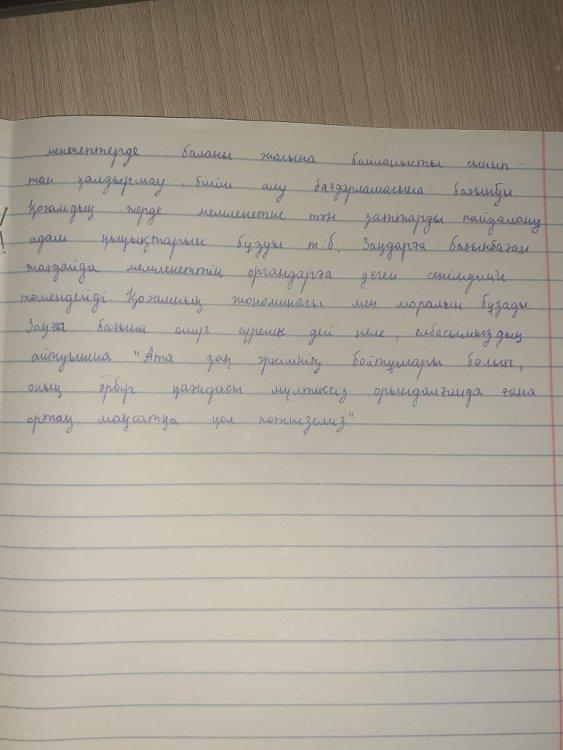 мектептерде баланы жасына байланысты сынып-
тан қалдырмау, білім алу бағдарламасына бағынбу
Қоғамдық жерде мемлекетке тән заттарды пайдалану
адам құқықтарын бұзды т.б. Заңдарға бағынбаған
жағдайда мемлекеттік органдарға деген сенімділік
төмендейді. Қоғамның экономикасы мен моралын бұзады
Заңға бағына өмір сүрейік дей келе, елбасымыздың
айтуынша "Ата заң еркіміңің бойтұмары болып,
оның әрбір қағидасы мүлтіксіз орындалғанда ғана
ортақ мақсатқа қол жеткіземіз"